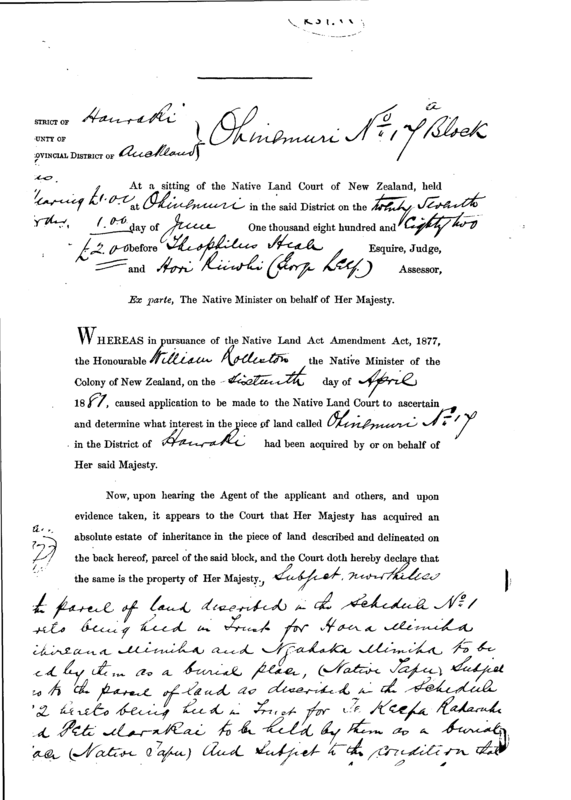 STRICT OF Hauraki
UNTY OF
OVINCIAL DISTRICT OF Auckland
Ohinemuri No 17a Block
At a sitting of the Native Land Court of New Zealand, held
earing £1.0.0 at Ohinemuri in the said District on the twenty seventh
rder 1.0.0 day of June One thousand eight hundred and Eighty two
£2.0.0 before Theophilus Heale Esquire, Judge,
and Hori (George Assessor,
Ex parte, The Native Minister on behalf of Her Majesty.
WHEREAS in pursuance of the Native Land Act Amendment Act, 1877,
the Honourable William Rolleston the Native Minister of the
Colony of New Zealand, on the Sixteenth day of April
1881, caused application to be made to the Native Land Court to ascertain
and determine what interest in the piece of land called Ohinemuri No 17
in the District of Hauraki had been acquired by or on behalf of
Her said Majesty.
Now, upon hearing the Agent of the applicant and others, and upon
evidence taken, it appears to the Court that Her Majesty has acquired an
absolute estate of inheritance in the piece of land described and delineated on
the back hereof, parcel of the said block, and the Court doth hereby declare that
the same is the property of Her Majesty, Subject nevertheless
to parcel of land described in the Schedule No 1
reto being held in Trust for Hoera Mimiha
Mimiha and Ngahaka Mimiha to be
ed by them as a burial place, (Native Tapu) Subject
to the parcel of land as described in the Schedule
2 hereto being held in Trust for Te Keepa
d Pita to be held by them as a burial
ace (Native Tapu) And Subject to the condition that